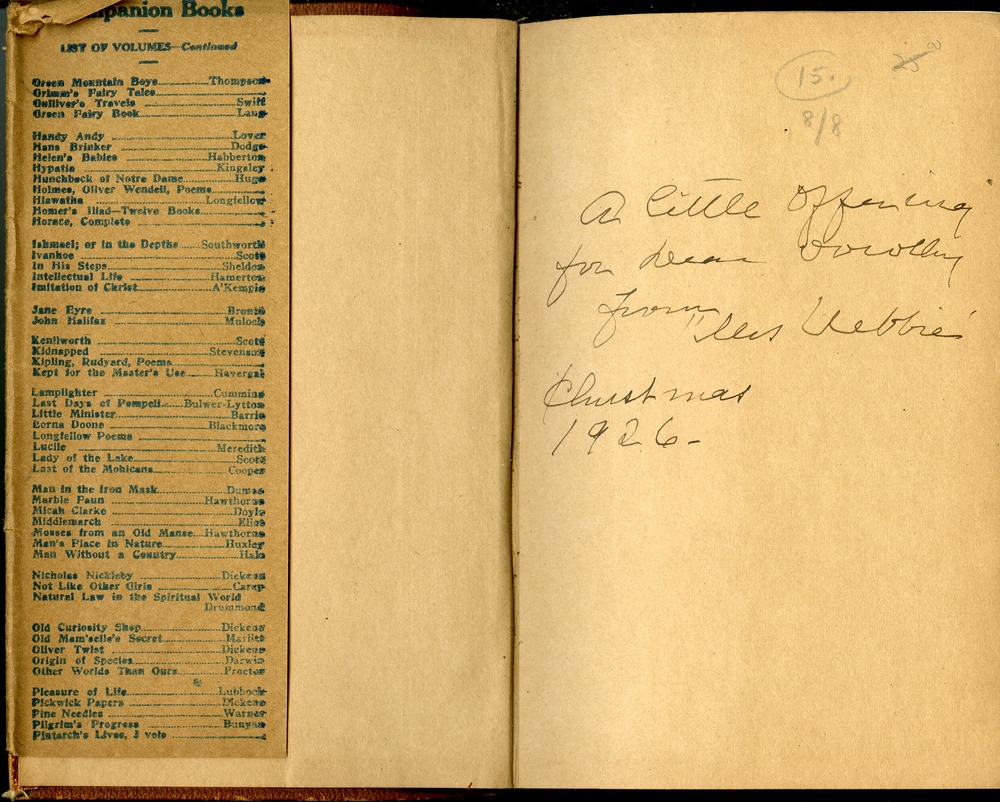 mpanion Books
LIST OF VOLUMES—Continued
Green Mountain Boys Thompson
Grimm's Fairy Tales
Gulliver's Travels Swift
Green Fairy Book Lang
Handy Andy Lover
Hans Brinker Dodge
Helen's Babies Habberton
Hypatia Kingsley
Hunchback of Notre Dame Hugo
Holmes, Oliver Wendell, Poems
Hiawatha Longfellow
Homer's Iliad—Twelve Books
Horace, Complete
Ishmael; or in the Depths Southworth
Ivanhoe Scott
In His Steps Sheldon
Intellectual Life Hamerton
Imitation of Christ A'Kempis
Jane Eyre Bronte
John Halifax Muloch
Kenilworth Scott
Kidnapped Stevenson
Kipling, Rudyard, Poems
Kept for the Master's Use Havergal
Lamplighter Cummins
Last Days of Pompeii Bulwer-Lytton
Little Minister Barrie
Lorna Doone Blackmore
Longfellow Poems
Lucile Meredith
Lady of the Lake Scott
Last of the Mohicans Cooper
Man in the Iron Mask Dumas
Marble Faun Hawthorne
Micah Clarke Doyle
Middlemarch Eliot
Mosses from an Old Manse Hawthorne
Man's Place in Nature Huxley
Man Without a Country Hale
Nicholas Nickleby Dickens
Not Like Other Girls Carey
Natural Law in the Spiritual World
Drummond
Old Curiosity Shop Dickens
Old Mam'selle's Secret Marlitt
Oliver Twist Dickens
Origin of Species Darwin
Other Worlds Than Ours Proctor
Pleasure of Life Lubbock
Pickwick Papers Dickens
Pine Needles Warner
Pilgrim's Progress Bunyan
Plutarch's Lives, 3 vols
15.
8/8
A little Offering
for dear Dorothy
from
Christmas
1926-